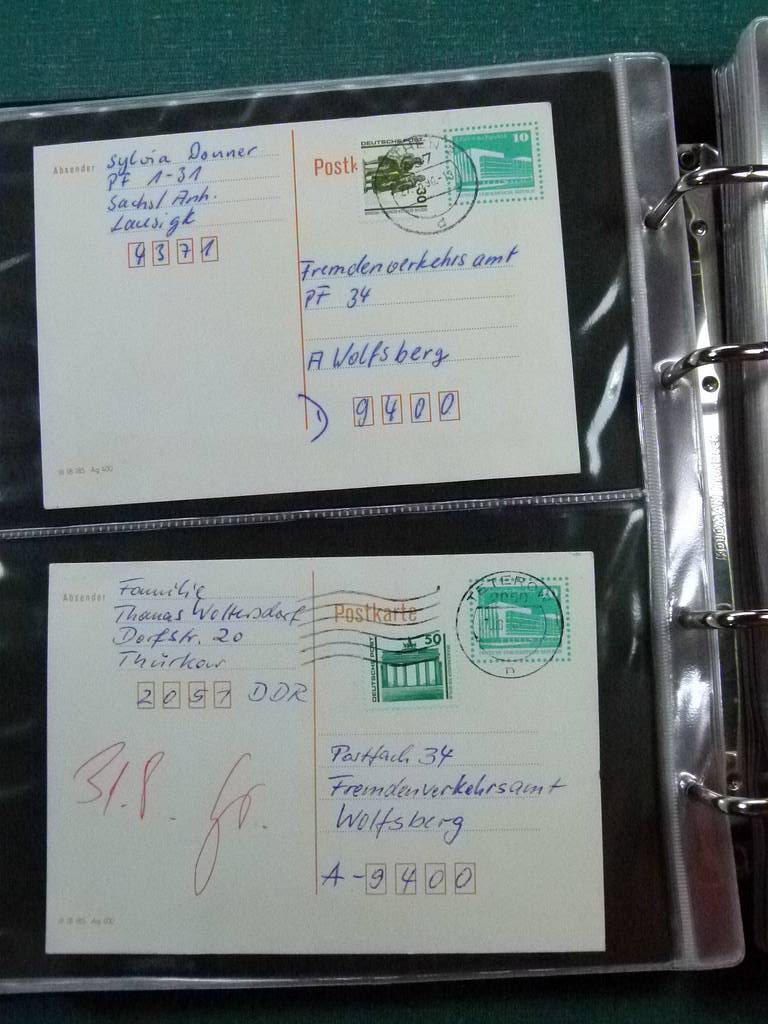 Absender
Sylvia Donner
PF 1-31
Sachs. Anh.
Lausigk
4371
Postk
DEUTSCHE POST
30
10
Fremdenverkehrsamt
PF 34
A Wolfsberg
9400
III 18 185 Ag 400
Absender
Familie
Thomas Woltersdorf
Dorfstr. 20
Thürkow
2051 DDR
Postkarte
DEUTSCHE POST
50
TETEROW
2050
n
31.8.
Postfach 34
Fremdenverkehrsamt
Wolfsberg
A-9400
III 18 185 Ag 400